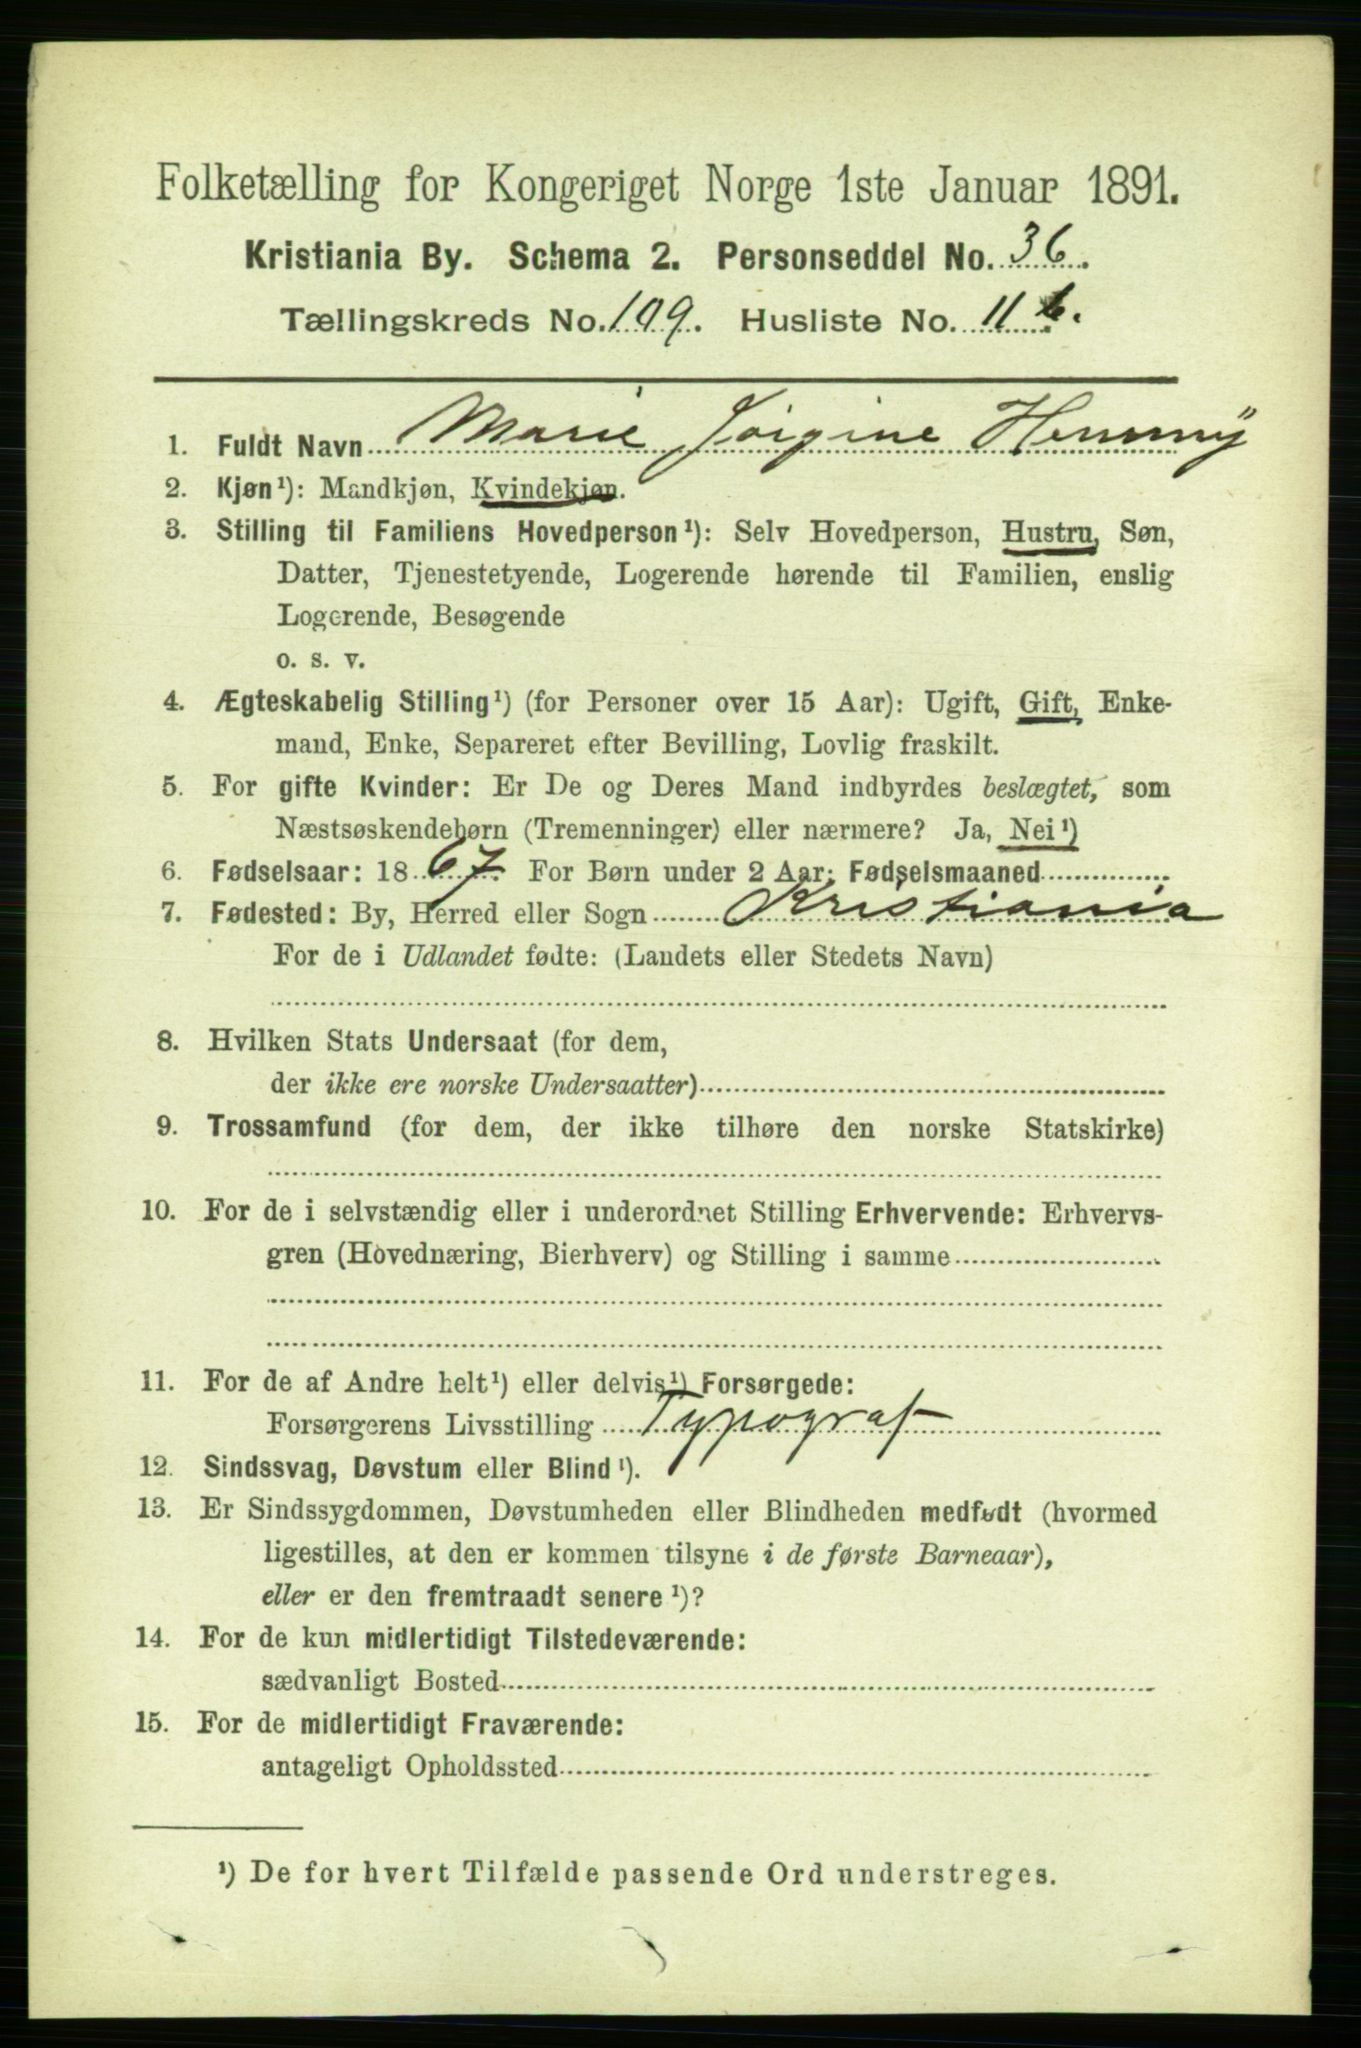 Folketælling for Kongeriget Norge 1ste Januar 1891.
Kristiania By. Schema 2. Personseddel No. 36.
Tællingskreds No. 109. Husliste No. 11 b.
1. Fuldt Navn Marie Jørgine Hemmy
2. Kjøn¹): Mandkjøn, Kvindekjøn.
3. Stilling til Familiens Hovedperson¹): Selv Hovedperson, Hustru, Søn,
Datter, Tjenestetyende, Logerende hørende til Familien, enslig
Logerende, Besøgende
o. s. v.
4. Ægteskabelig Stilling¹) (for Personer over 15 Aar): Ugift, Gift, Enke-
mand, Enke, Separeret efter Bevilling, Lovlig fraskilt.
5. For gifte Kvinder: Er De og Deres Mand indbyrdes beslægtet, som
Næstsøskendebørn (Tremenninger) eller nærmere? Ja, Nei¹)
6. Fødselsaar: 1867. For Børn under 2 Aar: Fødselsmaaned
7. Fødested: By, Herred eller Sogn Kristiania
For de i Udlandet fødte: (Landets eller Stedets Navn)
8. Hvilken Stats Undersaat (for dem,
der ikke ere norske Undersaatter)
9. Trossamfund (for dem, der ikke tilhøre den norske Statskirke)
10. For de i selvstændig eller i underordnet Stilling Erhvervende: Erhvervs-
gren (Hovednæring, Bierhverv) og Stilling i samme
11. For de af Andre helt¹) eller delvis¹) Forsørgede:
Forsørgerens Livsstilling Typograf
12. Sindssvag, Døvstum eller Blind¹).
13. Er Sindssygdommen, Døvstumheden eller Blindheden medfødt (hvormed
ligestilles, at den er kommen tilsyne i de første Barneaar),
eller er den fremtraadt senere¹)?
14. For de kun midlertidigt Tilstedeværende:
sædvanligt Bosted
15. For de midlertidigt Fraværende:
antageligt Opholdssted
¹) De for hvert Tilfælde passende Ord understreges.